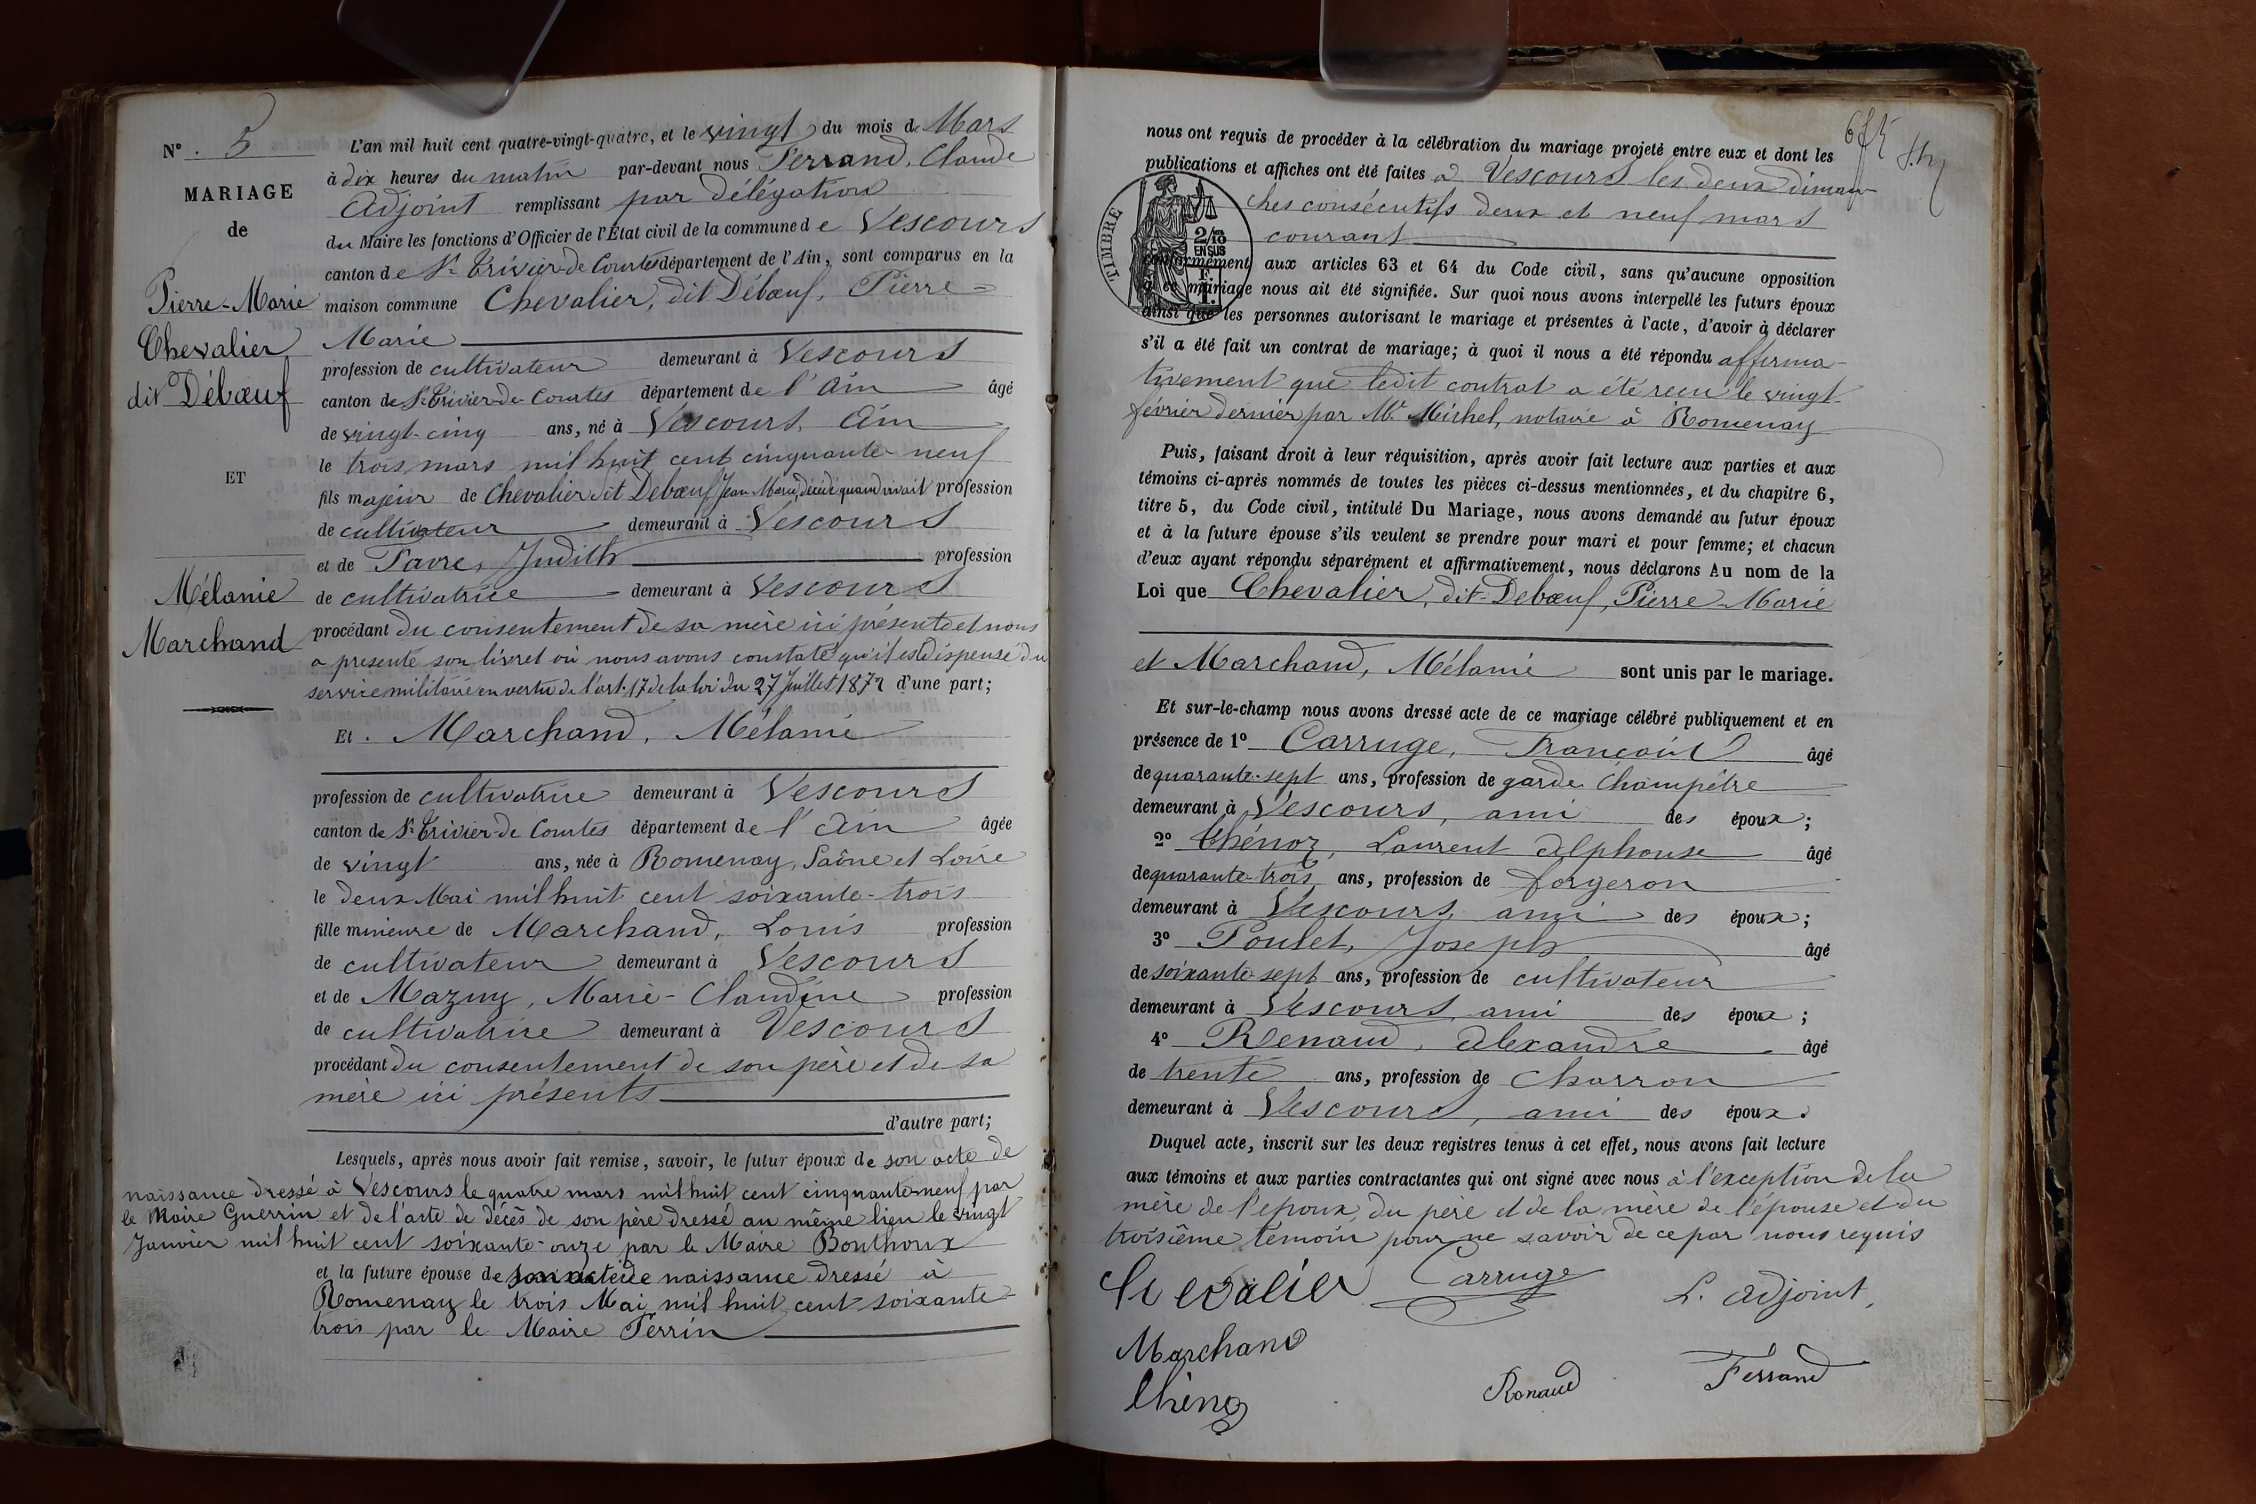 N° . 5
MARIAGE
de
Pierre-Marie
Chevalier
dit Débœuf
ET
Mélanie
Marchand
L'an mil huit cent quatre-vingt-quatre, et le vingt du mois de Mars
à dix heures du matin par-devant nous Ferrand, Claude
Adjoint remplissant par délégation
du Maire les fonctions d'Officier de l'État civil de la commune de Vescours
canton de St Trivier-de Courtes département de l'Ain, sont comparus en la
maison commune Chevalier, dit Débœuf, Pierre-
Marie
profession de cultivateur demeurant à Vescours
canton de St Trivier-de Courtes département de l'Ain âgé
de vingt-cinq ans, né à Vescours, Ain
le trois mars mil huit cent cinquante-neuf
fils majeur de Chevalier dit Debœuf Jean Marie, décédé quand vivait profession
de cultivateur demeurant à Vescours
et de Favre, Judith profession
de cultivatrice demeurant à Vescours
procédant du consentement de sa mère ici présente et nous
a presenté son livret où nous avons constaté qu'il est dispensé du
service militaire en vertu de l'art. 17 de la loi du 27 Juillet 1872 d'une part;
Et . Marchand, Mélanie
profession de cultivatrice demeurant à Vescours
canton de St Trivier-de Courtes département de l'Ain âgée
de vingt ans, née à Romenay, Saône et Loire
le deux Mai mil huit cent soixante-trois
fille mineure de Marchand, Louis profession
de cultivateur demeurant à Vescours
et de Mazuy, Marie-Claudine profession
de cultivatrice demeurant à Vescours
procédant du consentement de son père et de sa
mère ici présents
d'autre part;
Lesquels, après nous avoir fait remise, savoir, le futur époux de son acte de
naissance dressé à Vescours le quatre mars mil huit cent cinquante neuf par
le Maire Guerrin et de l'acte de décès de son père dressé au même lieu le vingt
Janvier mil huit cent soixante-onze par le Maire Bouthoux
et la future épouse de son acte de naissance dressé à
Romenay le trois Mai mil huit cent soixante-
trois par le Maire Perrin
nous ont requis de procéder à la célébration du mariage projeté entre eux et dont les
publications et affiches ont été faites à Vescours les deux diman-
ches consécutifs deux et neuf mars
courant
TIMBRE
2/10
EN SUS
conformément aux articles 63 et 64 du Code civil, sans qu'aucune opposition
à ce mariage nous ait été signifiée. Sur quoi nous avons interpellé les futurs époux
ainsi que les personnes autorisant le mariage et présentes à l'acte, d'avoir à déclarer
s'il a été fait un contrat de mariage; à quoi il nous a été répondu affirma-
tivement que ledit contrat a été reçu le vingt
février dernier par Me Michel, notaire à Romenay
Puis, faisant droit à leur réquisition, après avoir fait lecture aux parties et aux
témoins ci-après nommés de toutes les pièces ci-dessus mentionnées, et du chapitre 6,
titre 5, du Code civil, intitulé Du Mariage, nous avons demandé au futur époux
et à la future épouse s'ils veulent se prendre pour mari et pour femme; et chacun
d'eux ayant répondu séparément et affirmativement, nous déclarons Au nom de la
Loi que Chevalier, dit-Debœuf, Pierre-Marie
et Marchand, Mélanie sont unis par le mariage.
Et sur-le-champ nous avons dressé acte de ce mariage célébré publiquement et en
présence de 1° Carruge, François âgé
de quarante-sept ans, profession de garde Champêtre
demeurant à Vescours, ami des époux;
2° Thénoz, Laurent Alphonse âgé
de quarante-trois ans, profession de forgeron
demeurant à Vescours, ami des époux;
3° Poulet, Joseph âgé
de soixante-sept ans, profession de cultivateur
demeurant à Vescours, ami des époux;
4° Renaud, Alexandre âgé
de trente ans, profession de Charron
demeurant à Vescours, ami des époux.
Duquel acte, inscrit sur les deux registres tenus à cet effet, nous avons fait lecture
aux témoins et aux parties contractantes qui ont signé avec nous à l'exception de la
mère de l'époux, du père et de la mère de l'épouse et du
troisième témoin pour ne savoir de ce par nous requis
Chevalier Carruge L. Adjoint,
Marchand
Renaud Ferrand